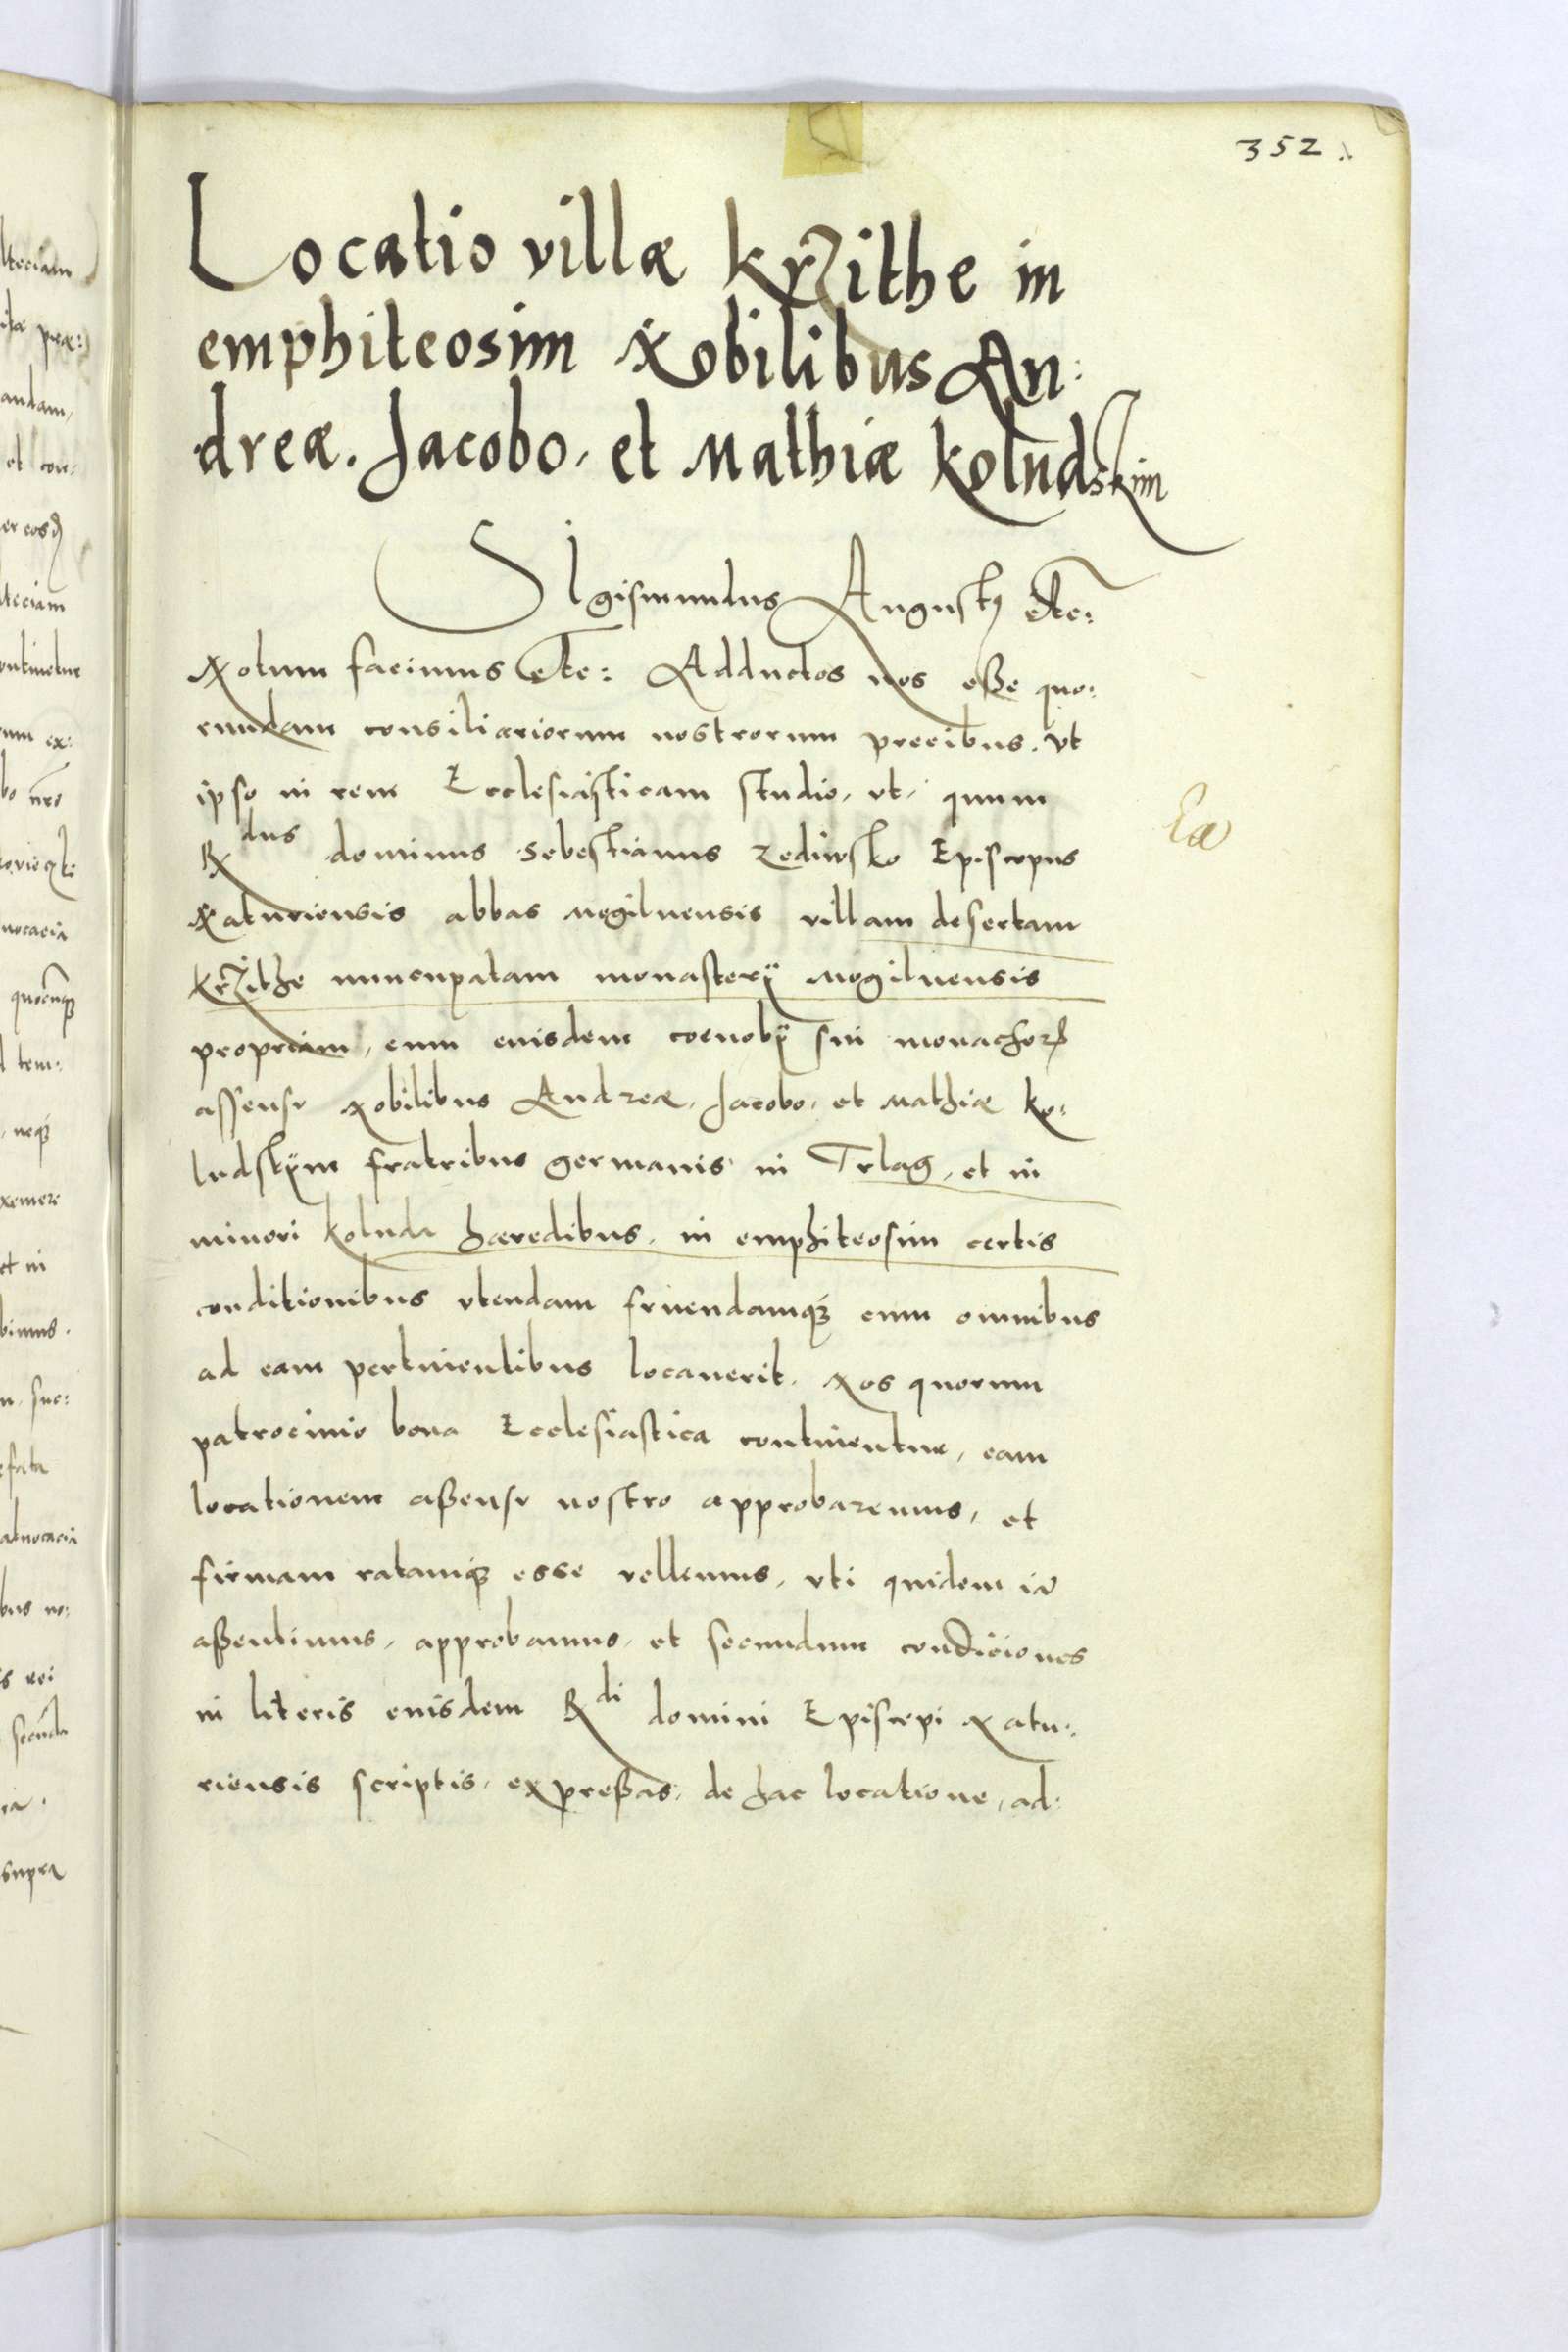 352.
Locatio villæ krzithe in
emphiteosim Nobilibus An:
dreæ. Jacobo, et Mathiæ koludskim
SIgismundus August9 etc:
Notum facimus etc: Adductos nos eße quo:
rundam consiliariorum nostrorum precibus. vt
ipso in rem Ecclesiasticam studio, vt, quum
Rdus dominus Sebestianus Zediwsko Episcopus
Naturiensis abbas Mogilnensis villam desertam
krzithe nuncupatam monasterÿ Mogilnensis
propriam, cum euisdem coenobÿ sui monachorꝝ
assensu Nobilibus Andreæ, Jacobo, et Mathiæ ko:
ludskÿm fratribus germanis in Trlag, et in
minori koluda hæredibus, in emphiteosim certis
conditionibus vtendam fruendamqꝫ cum omnibus
ad eam pertinentibus locauerit. Nos quorum
patrocinio bona Ecclesiastica continentur, eam
locationem aßensu nostro approbaremus, et
firmam ratamqꝫ esse vellemus, vti quidem id
aßentimus, approbamus, et secundum condiciones
in literis euisdem Rdi domini Episcopi Natu:
riensis scriptis, expreßas, de hac locatione, ad: